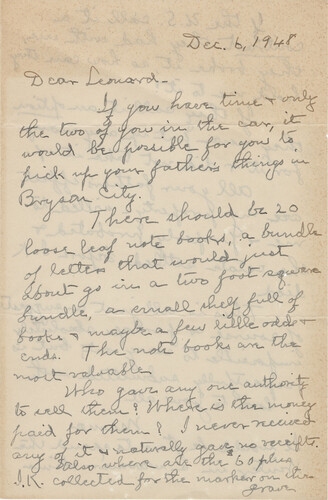 Dec. 6, 1948
Dear Leonard -
If you have time & only
the two of you in the car, it
would be possible for you to
pick up your father's things in
Bryson City.
There should be 20
loose leaf note books, a bundle
of letters that would just
about go in a two foot square
bundle, a small shelf full of
books & maybe a few little odds &
ends. The note books are the
most valuable.
Who gave any one authority
to sell them? Where is the money
paid for them? I never received
any of it & naturally gave no receipts.
Also where are the 60 plus
I.K. collected for the marker on the
grave